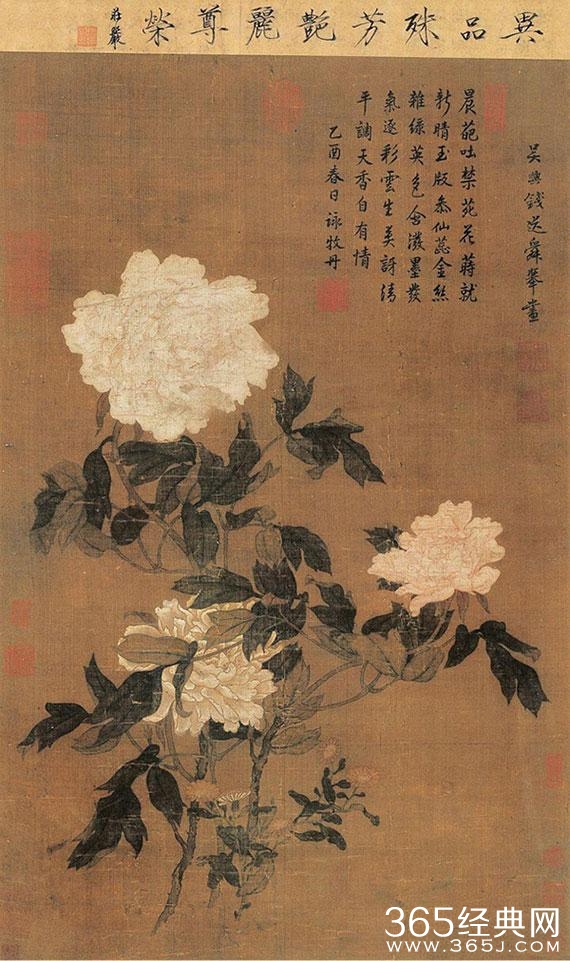 異品殊芳艷麗尊榮
莊嚴
吳興錢選舜舉畫
晨葩吐禁苑花蒔就
新晴玉版參仙蕊金絲
雜綠英色含潑墨發
氣逐彩雲生莫訝清
平調天香自有情
乙酉春日詠牡丹
365经典网
www.365J.com